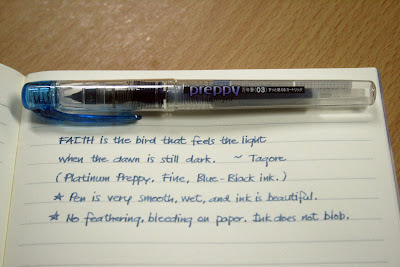 preppy 万年筆 (03)
FAITH is the bird that feels the light
when the dawn is still dark. ~ Tagore
(Platinum Preppy, Fine, Blue-Black ink.)
★ Pen is very smooth, wet, and ink is beautiful.
★ No feathering, bleeding on paper. Ink does not blob.